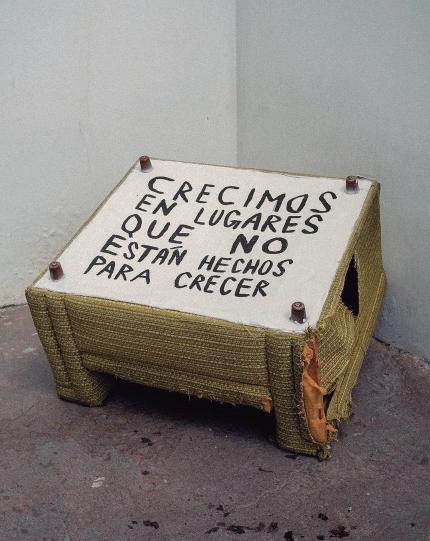 CRECIMOS
EN LUGARES
QUE NO
ESTÁN HECHOS
PARA CRECER